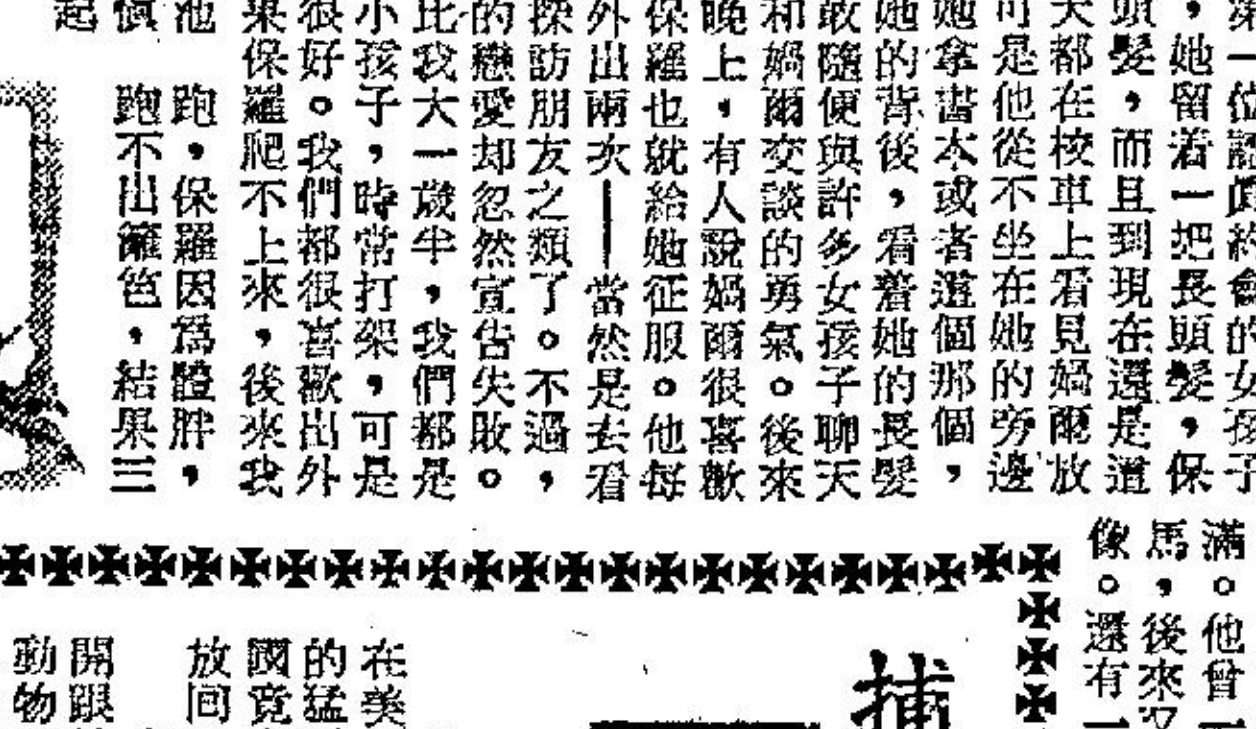 ，她留着一把長頭髮，保
頭髮，而且到現在還是這
天都在校車上看見媧爾放
可是他從不坐在她的旁邊
她拿書本或者這個那個，
她的背後，看着她的長髮
敢隨便與許多女孩子聊天
和媧爾交談的勇氣。後來
晚上，有人說媧爾很喜歡
保羅也就給她征服。他每
外出兩次——當然是去看
探訪朋友之類了。不過，
的戀愛却忽然宣告失敗。
比我大一歲半，我們都是
小孩子，時常打架，可是
很好。我們都很喜歡出外
果保羅爬不上來，後來我
池 跑，保羅因爲體胖，
慎 跑不出籬笆，結果三
起
滿。他曾
馬，後來又
像。還有一
捕
在美
的猛
國竟
放回
開眼
動物